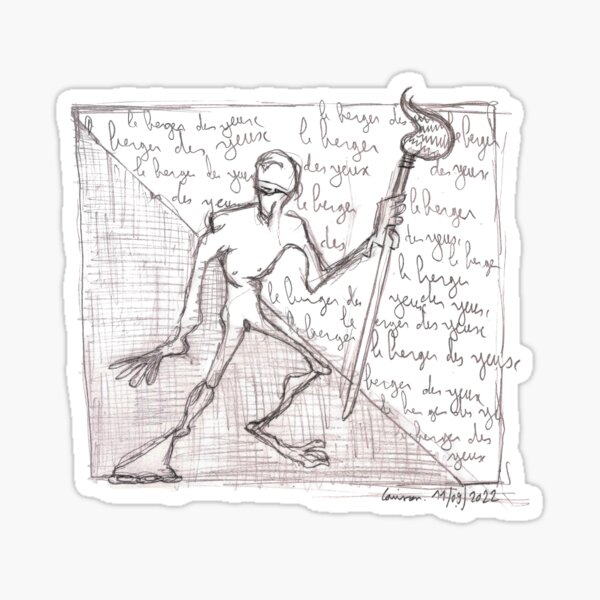 le berger des yeux le berger des le berger
berger des yeux le berger
le berger des yeux des yeux des yeux
des yeux le berger le berger
des des yeux
le berger
le berger
le berger des yeux des yeux
le berger le berger des yeux
le berger des yeux
berger des yeux
le berger des ye
berger des
yeux
11/09/2022